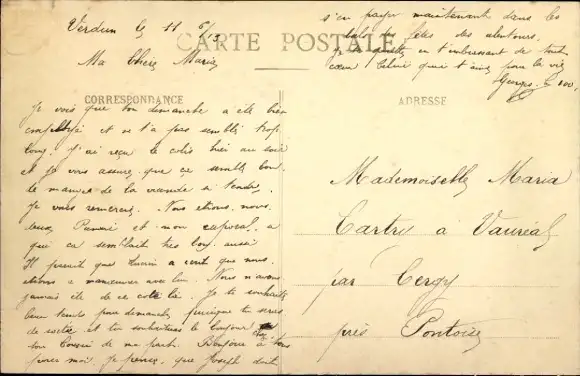 Verdun le 11 6/13
CARTE POSTALE
Ma Chère Maria
CORRESPONDANCE
Je vois que ton dimanche a été bien
et ne t'a pas semblé trop
long. J'ai reçu le colis hier au soir
et je vous assure que ce semble bon
de manger de la viande
Je vous remercie. Nous étions nous
deux et mon caporal a
qui ca semblait très bon aussi
Il que a cru que nous
étions a manoeuvrer avec lui. Nous n'avons
jamais été de ce coté là. Je te souhaite
beau temps pour dimanche puisque tu seras
de sortie et tu souhaiteras le bonjour
ton Cousin de ma part. Bonjour à tous
pour moi. Je pense que Joseph doit
s'en payer maintenant dans les
fêtes des alentours.
Je quitte en t'embrassant de tout
coeur Celui qui t'aime pour la vie
Georges
ADRESSE
Mademoiselle Maria
Cartry à Vauréal
par Cergy
près Pontoise